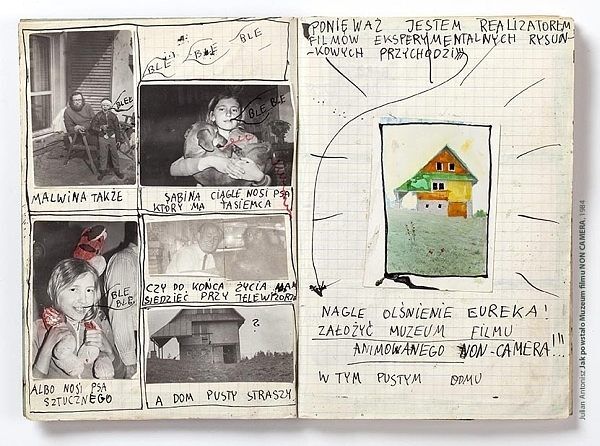 BLE
BLE
BLE
BLE
MALWINA TAKŻE
BLE BLE
SABINA CIĄGLE NOSI PSA
KTÓRY MA TASIEMCA
BLE
BLE
ALBO NOSI PSA
SZTUCZNEGO
CZY DO KOŃCA ŻYCIA MAM
SIEDZIEĆ PRZY TELEWIZORZE
?
A DOM PUSTY STRASZY
PONIEWAŻ JESTEM REALIZATOREM
FILMÓW EKSPERYMENTALNYCH RYSUN-
-KOWYCH PRZYCHODZI!!!
NAGLE OLŚNIENIE EUREKA!
ZAŁOŻYĆ MUZEUM FILMU
ANIMOWANEGO NON-CAMERA!!!
W TYM PUSTYM DOMU
Julian Antonisz Jak powstało Muzeum filmu NON CAMERA, 1984